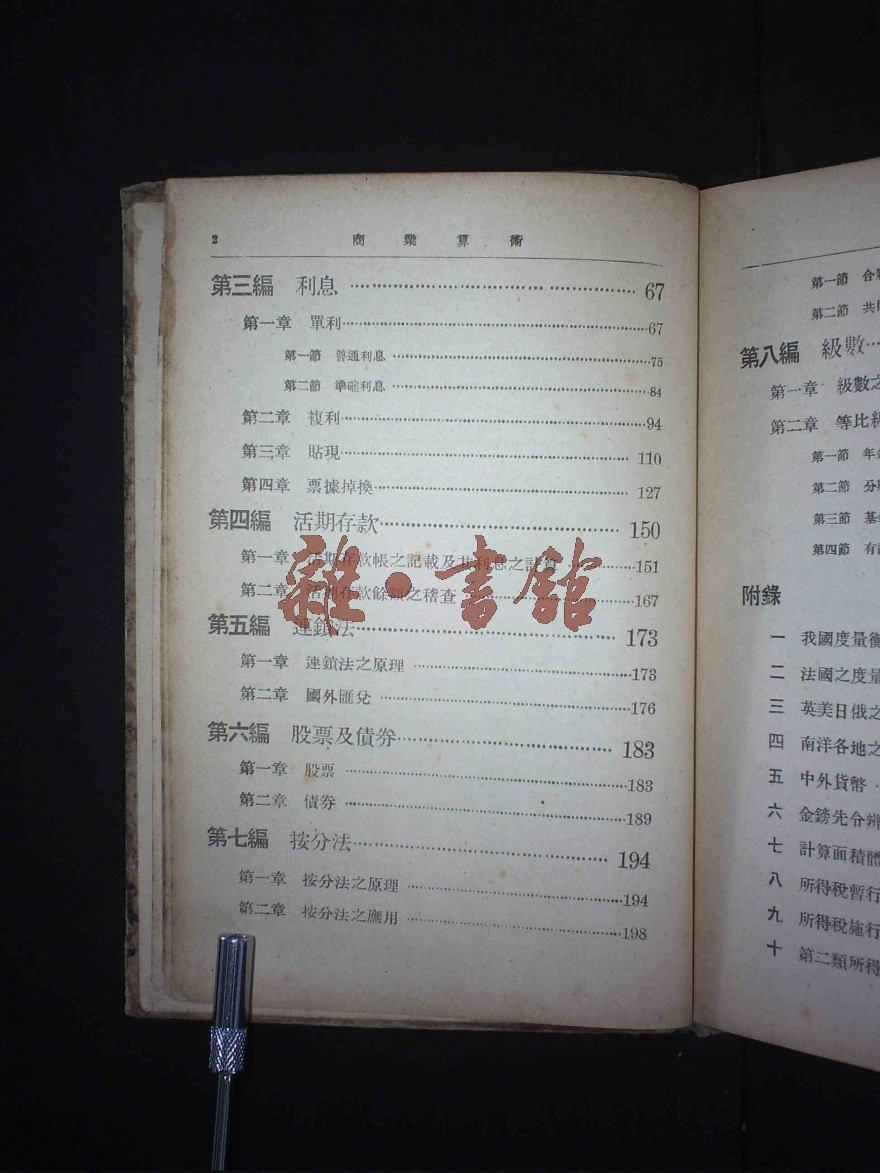 2 商業算術
第三編 利息 67
第一章 單利 67
第一節 普通利息 75
第二節 準確利息 84
第二章 複利 94
第三章 貼現 110
第四章 票據掉換 127
第四編 活期存款 150
第一章 活期存款帳之記載及其利息之計算 151
第二章 活期存款餘額之稽查 167
第五編 連鎖法 173
第一章 連鎖法之原理 173
第二章 國外匯兌 176
第六編 股票及債券 183
第一章 股票 183
第二章 債券 189
第七編 按分法 194
第一章 按分法之原理 194
第二章 按分法之應用 198
雜·書館
第一節 合
第二節 共
第八編 級數
第一章 級數之
第二章 等比級
第一節 年
第二節 分
第三節 基
第四節 有
附錄
一 我國度量衡
二 法國之度量
三 英美日俄之
四 南洋各地之
五 中外貨幣
六 金鎊先令辨
七 計算面積體
八 所得稅暫行
九 所得稅施行
十 第二類所得